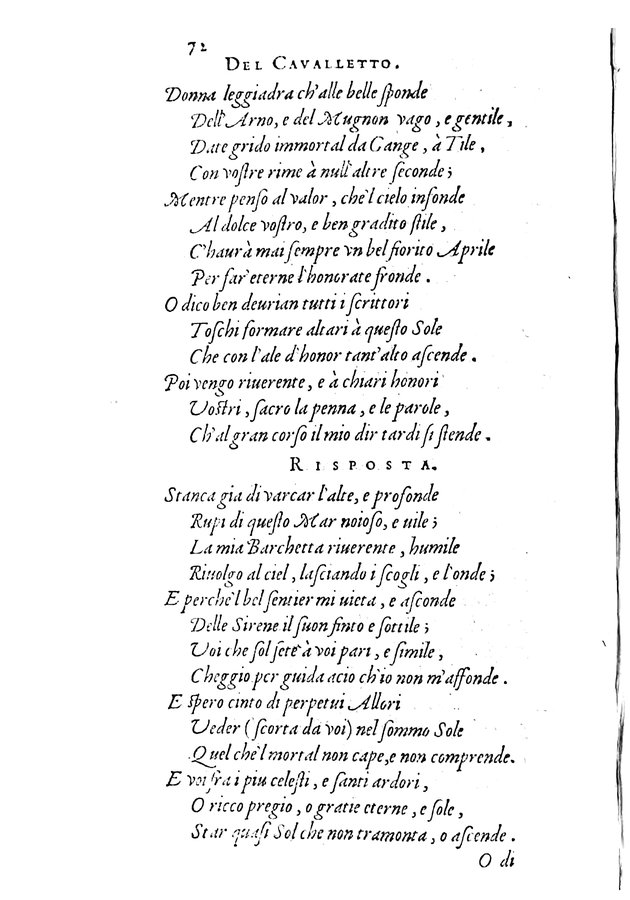 72
DEL CAVALLETTO.
Donna leggiadra ch'alle belle ſponde
Dell'Arno, e del Mugnon vago, e gentile,
Date grido immortal da Gange, à Tile,
Con voſtre rime à null'altre ſeconde;
Mentre penſo al valor, che'l cielo infonde
Al dolce voſtro, e ben gradito ſtile,
C'haurà mai ſempre vn bel fiorito Aprile
Per far'eterne l'honorate fronde.
O dico ben deurian tutti i ſcrittori
Toſchi formare altari à queſto Sole
Che con l'ale d'honor tant'alto aſcende.
Poi vengo riuerente, e à chiari honori
Voſtri, ſacro la penna, e le parole,
Ch'al gran corſo il mio dir tardi ſi ſtende.
RISPOSTA.
Stanca gia di varcar l'alte, e profonde
Rupi di queſto Mar noioſo, e uile;
La mia Barchetta riuerente, humile
Riuolgo al ciel, laſciando i ſcogli, e l'onde;
E perche'l bel ſentier mi uieta, e aſconde
Delle Sirene il ſuon finto e ſottile;
Voi che ſol ſete à voi pari, e ſimile,
Cheggio per guida acio ch'io non m'affonde.
E ſpero cinto di perpetui Allori
Veder (ſcorta da voi) nel ſommo Sole
Quel che'l mortal non cape, e non comprende.
E voi fra i piu celeſti, e ſanti ardori,
O ricco pregio, o gratie eterne, e ſole,
Star quaſi Sol che non tramonta, o aſcende.
O di